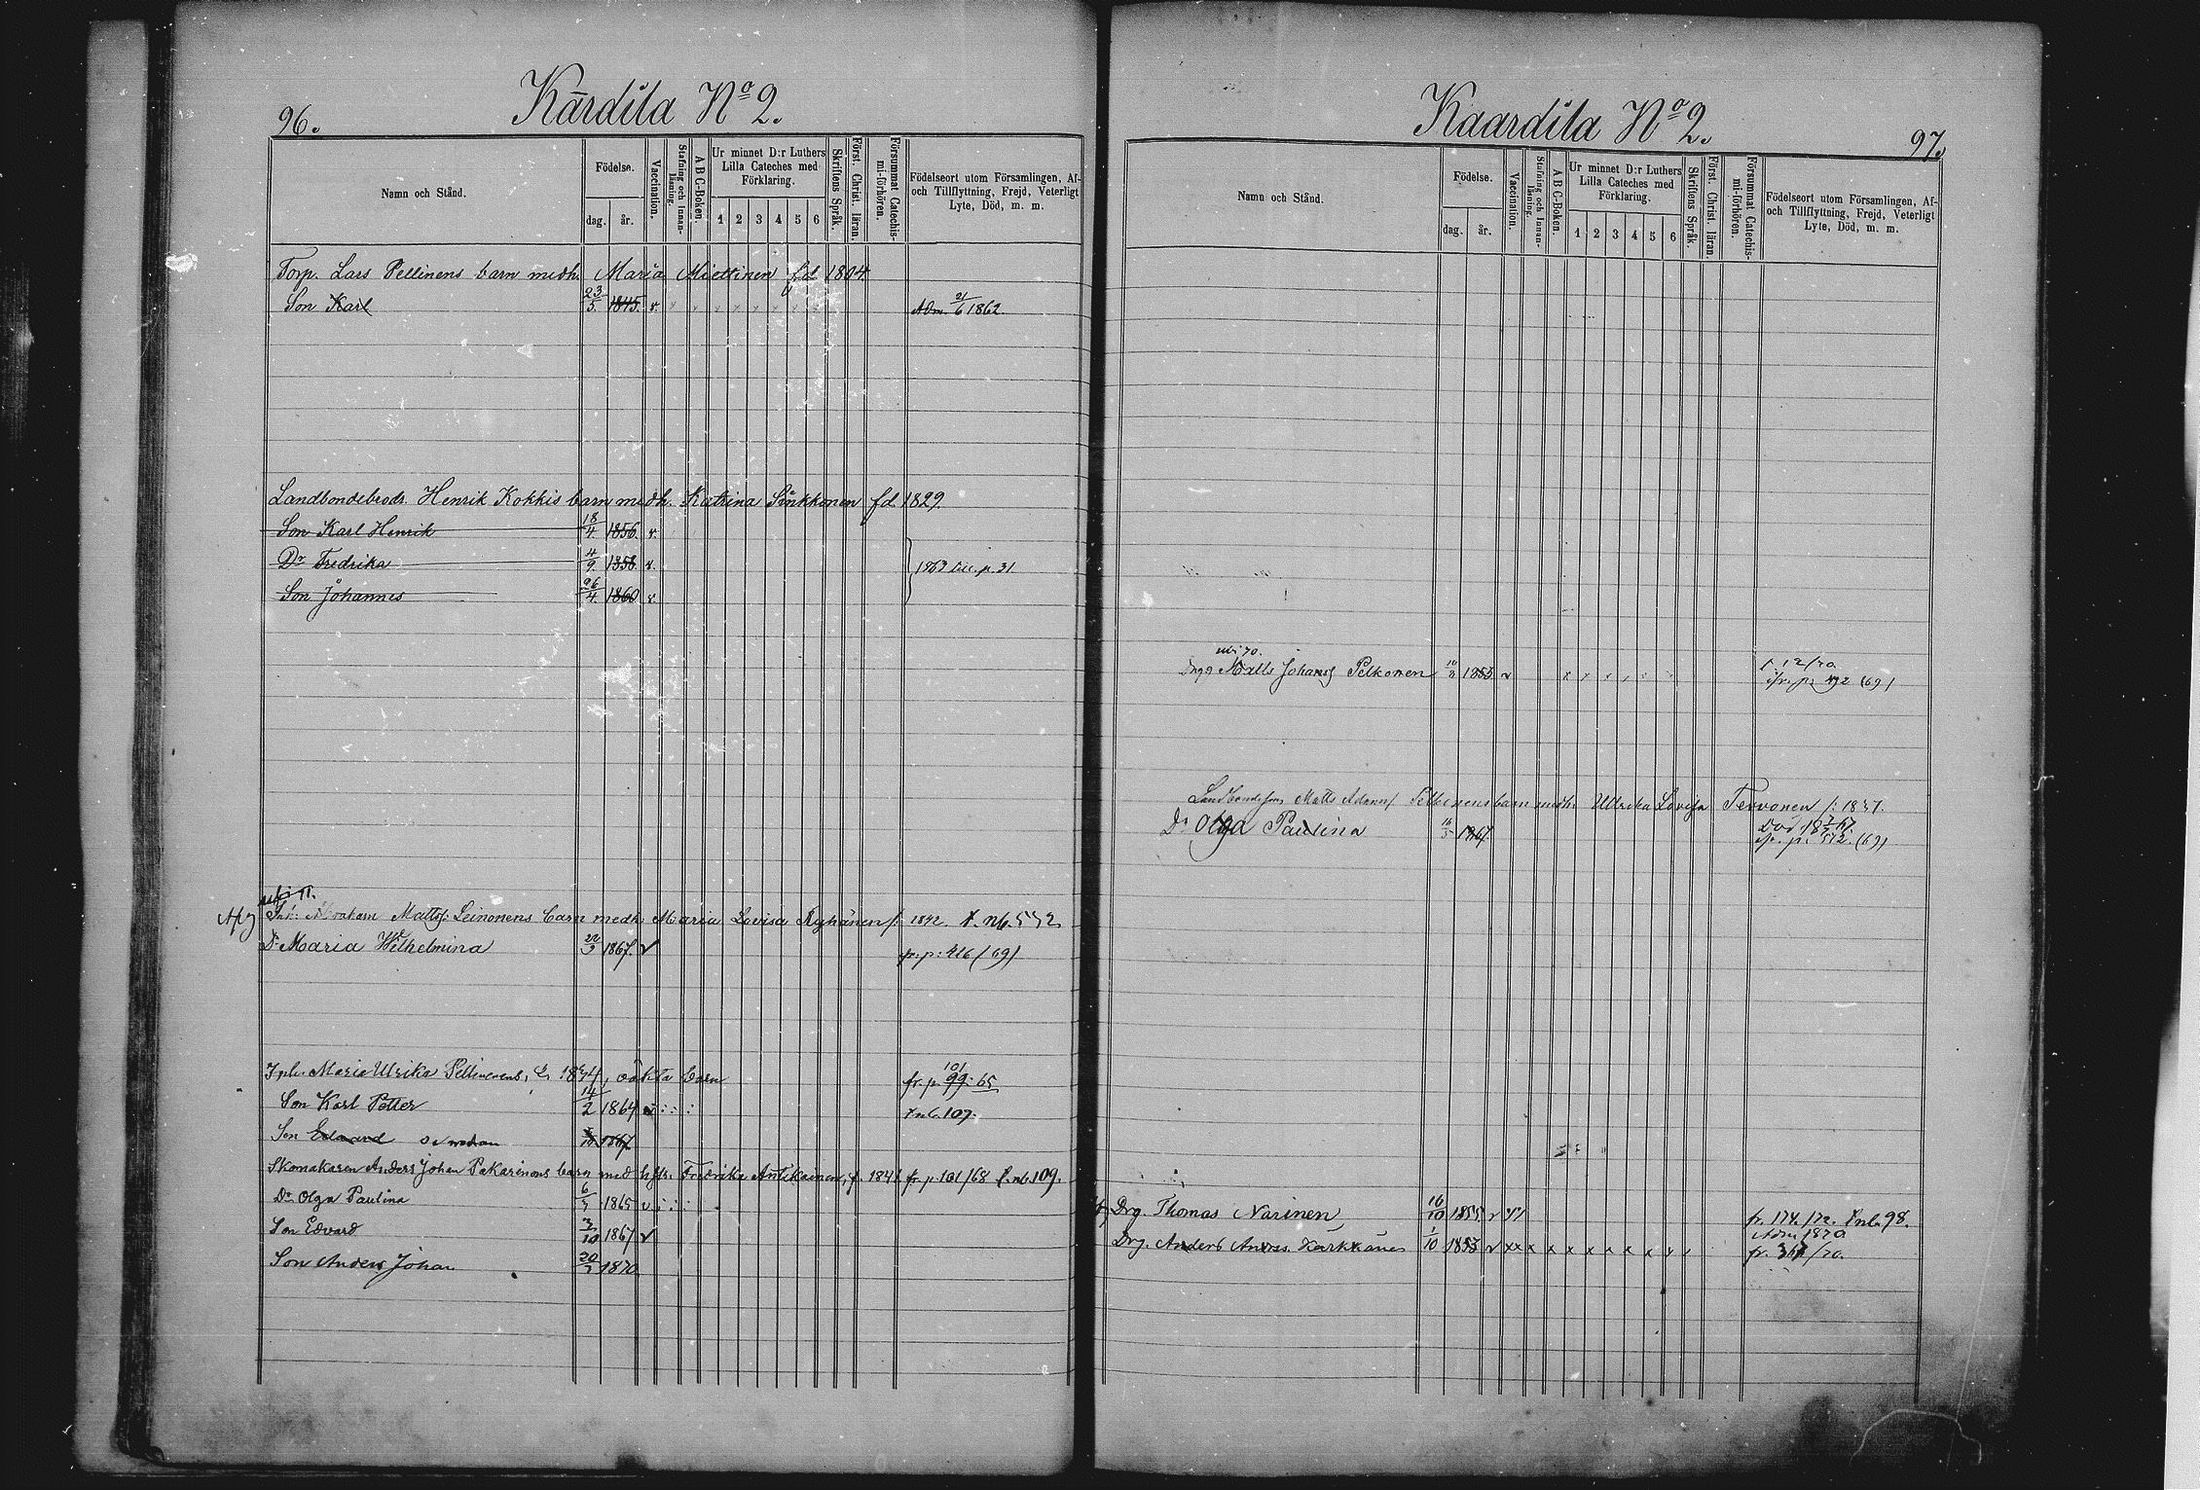 96.
Kärdila No 2.
Namn och Stånd.
Födelse.
dag.
år.
Vaccination.
Stafning och Innan-läsning.
A B C-Boken.
Ur minnet D:r Luthers
Lilla Cateches med
Förklaring.
1 2 3 4 5 6
Skriftens Språk.
Först. Christ. läran.
Försummat Catechis-mi-förhören.
Födelseort utom Församlingen, Af-
och Tillflyttning, Frejd, Veterligt
Lyte, Död, m. m.
Torp. Lars Pellinens barn medh. Maria Miettinen fd 1804
Son Karl 23/5. 1845. v. Adm. 21/6 1862.
Landbondebrodr. Henrik Kokkis barn medh. Katrina Sinkkonen fd. 1829.
Son Karl Henrik 18/4. 1856. v.
Dr Fredrika 4/9. 1858. v. 1863 p. 31
Son Johannes 26/4. 1860 v.
Abraham Mattsf Leinonens barn medh. Maria Lovisa Ryhänen f. 1842. nb. 532
Dr Maria Wilhelmina 22/9 1867. v fr. p: 416 (69)
Maria Ulrika Pellinens, oäkta barn fr. p. 99: 65
101
Son Karl Petter 14/2 1864 nb. 107.
Son Edvard 1867.
Skomakaren Anders Johan Pakarinens barn med hstr. Fredrika Antikainen, f. 1841 fr. p. 101/68 nb. 109.
Dr Olga Paulina 1865 v
Son Edvard 3/10 1867 v
Son Anders Johan 20/7 1870
Kaardila No 2.
97.
Namn och Stånd.
Födelse.
dag.
år.
Vaccination.
Stafning och Innan-läsning.
A B C-Boken.
Ur minnet D:r Luthers
Lilla Cateches med
Förklaring.
1 2 3 4 5 6
Skriftens Språk.
Först. Christ. läran.
Försummat Catechis-mi-förhören.
Födelseort utom Församlingen, Af-
och Tillflyttning, Frejd, Veterligt
Lyte, Död, m. m.
Matts Johansf Pelkonen 1853 v (69)
Landbondeson Matts Adamsf Pelkinens barn medh. Ullrika Lovisa Tervonen f. 1837.
Dr Olga Paulina 16/5 1867. Död
fr. p. 572. (69)
Drg. Thomas Narinen 16/10 1855 v fr. 174/72. nb. 98.
Adm 1870
Drg. Anders Andrss. Karkkäinen 1/10 1853 v x x x x x x x x x fr. 367/70.